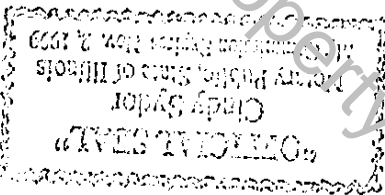 "OFFICIAL SEAL"
Cindy Sydor
Notary Public, State of Illinois
My Commission Expires Nov. 2, 1999
Property